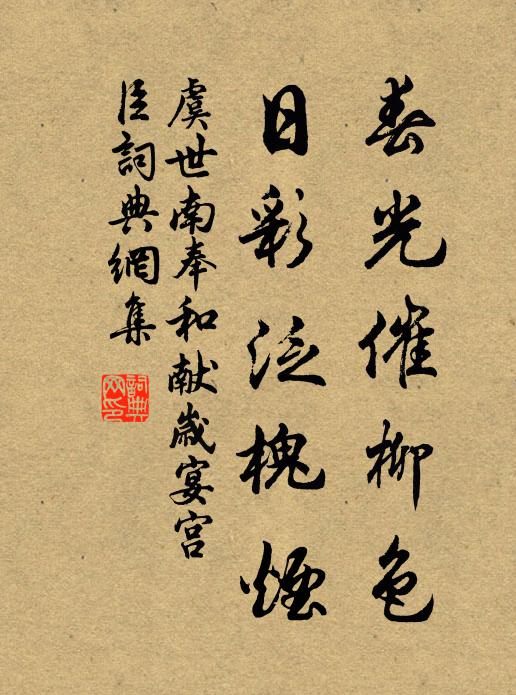 春光催柳色
日彩泛槐煙
虞世南奉和献歲宴宫
臣詞典網集
詞典
网印